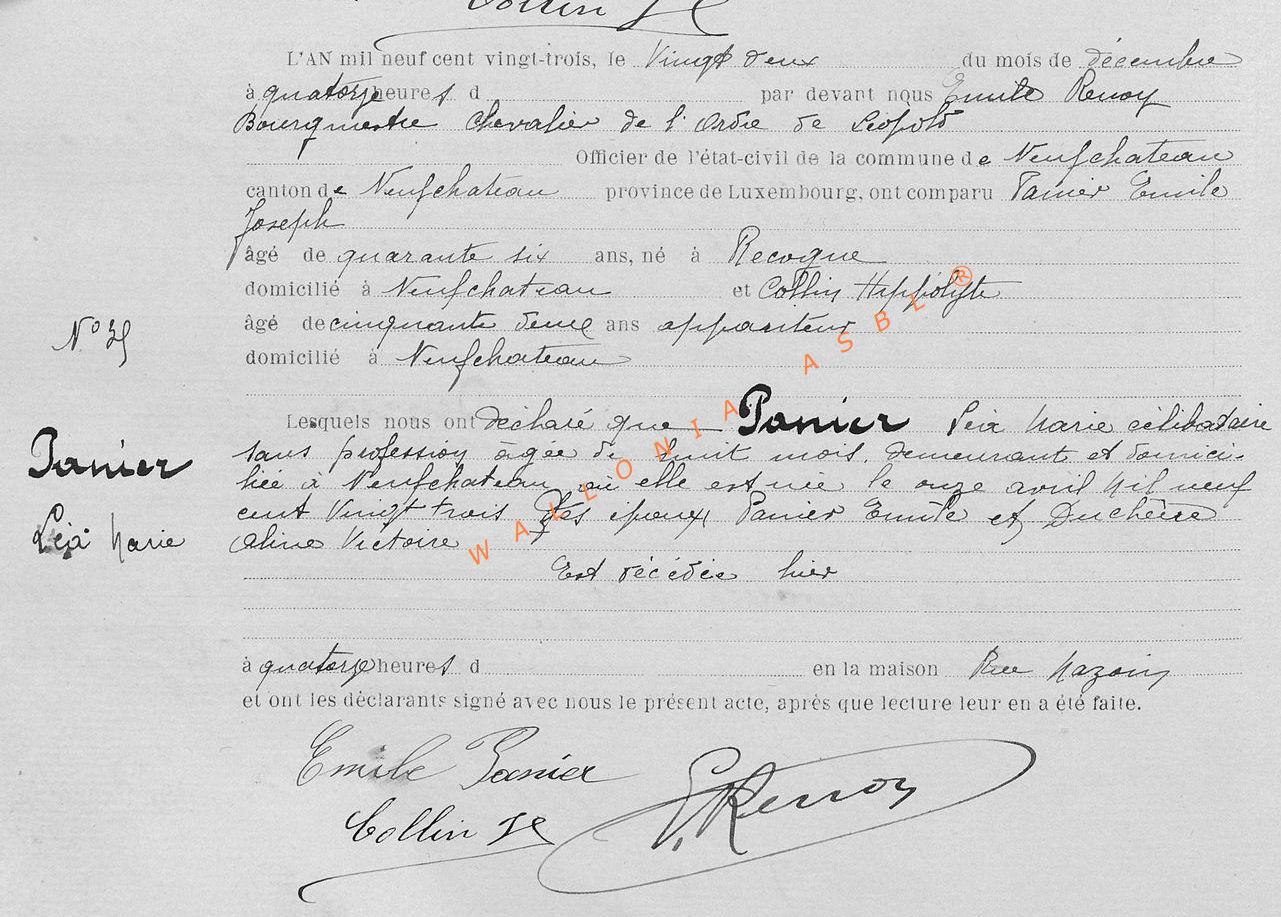 Collin H
L'AN mil neuf cent vingt-trois, le Vingt deux du mois de décembre
à quatorze heures d par devant nous Emile Renoy
Bourgmestre Chevalier de l'Ordre de Léopold
Officier de l'état-civil de la commune de Neufchateau
canton de Neufchateau province de Luxembourg, ont comparu Panier Emile
Joseph
âgé de quarante six ans, né à Recogne
domicilié à Neufchateau et Collin Hippolyte
âgé de cinquante deux ans appariteur
domicilié à Neufchateau
Lesquels nous ont déclaré que Panier Léa Marie célibataire
sans profession âgée de huit mois, demeurante et domici-
liée à Neufchateau où elle est née le onze avril Mil neuf
cent Vingt trois des époux Panier Emile et Duchêne
Aline Victoire
Est décédée hier
à quatorze heures d en la maison Rue
et ont les déclarants signé avec nous le présent acte, après que lecture leur en a été faite.
N°
Panier
Léa Marie
Emile Panier
Collin H
E. Renoy
WALLONIA ASBL ®